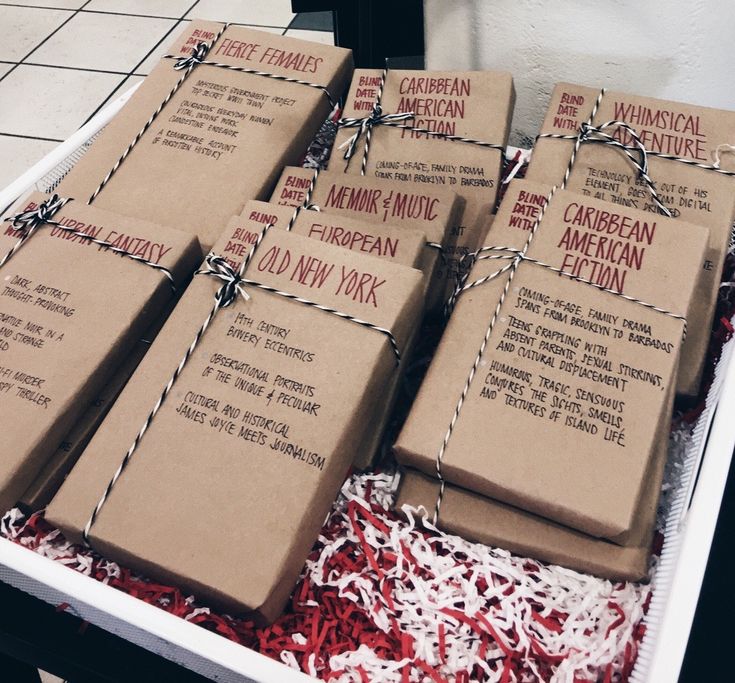 FIERCE FEMALES
MYSTERIOUS GOVERNMENT PROJECT
TOP SECRET WWII TOWN
COURAGEOUS EVERYDAY WOMEN
VITAL, UNSUNG WORK
CLANDESTINE ENDEAVOR
A REMARKABLE ACCOUNT
OF FORGOTTEN HISTORY
BLIND
DATE
WITH
CARIBBEAN
AMERICAN
FICTION
COMING-OF-AGE, FAMILY DRAMA
SPANS FROM BROOKLYN TO BARBADOS
BLIND
DATE
WITH
WHIMSICAL
ADVENTURE
TECHNOLOGY GEEK OUT OF HIS
ELEMENT, GOES FROM DIGITAL
TO ALL THINGS
BLIND
DATE
MEMOIR & MUSIC
BLIND
DATE
EUROPEAN
BLIND
DATE
WITH
OLD NEW YORK
19TH CENTURY
BOWERY ECCENTRICS
OBSERVATIONAL PORTRAITS
OF THE UNIQUE & PECULIAR
CULTURAL AND HISTORICAL
JAMES JOYCE MEETS JOURNALISM
BLIND
DATE
WITH
CARIBBEAN
AMERICAN
FICTION
COMING-OF-AGE, FAMILY DRAMA
SPANS FROM BROOKLYN TO BARBADOS
TEENS GRAPPLING WITH
ABSENT PARENTS, SEXUAL STIRRINGS,
AND CULTURAL DISPLACEMENT
HUMOROUS, TRAGIC, SENSUOUS
CONJURES THE SIGHTS, SMELLS,
AND TEXTURES OF ISLAND LIFE
URBAN FANTASY
DARK, ABSTRACT
THOUGHT-PROVOKING
NOIR IN A
AND STRANGE
MURDER
SPY THRILLER